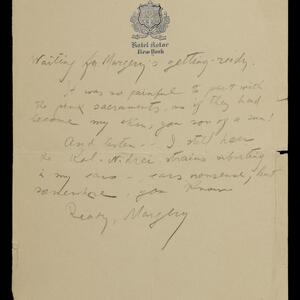 Hotel Astor
New York
Waiting for Margery's getting-ready.
It was so painful to part with
the pink sacraments, as if they had
become my skin, you son of a sun!
And listen - - I still hear
the Kol-Nidrei strains vibrating
in my ears - ears nonsense, but
somewhere, you know
Ready, Margery